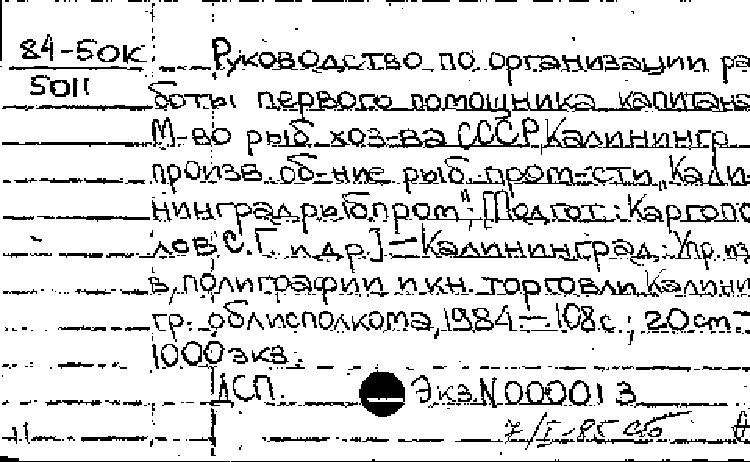 84-50К
5011
Руководство по организации ра
боты первого помощника капитана
М-во рыб. хоз-ва СССР, Калинингр.
произв. об-ние рыб. пром-сти „Кали-
нинградрыбпром"; [Подгот.: Каргопо
лов С.Г. и др.] — Калининград: Упр. из
в, полиграфии и кн. торговли Калини
гр. облисполкома, 1984 — 108 с.; 20 см —
1000 экз.
ДСП. Экз. N 0000013
7/I-85